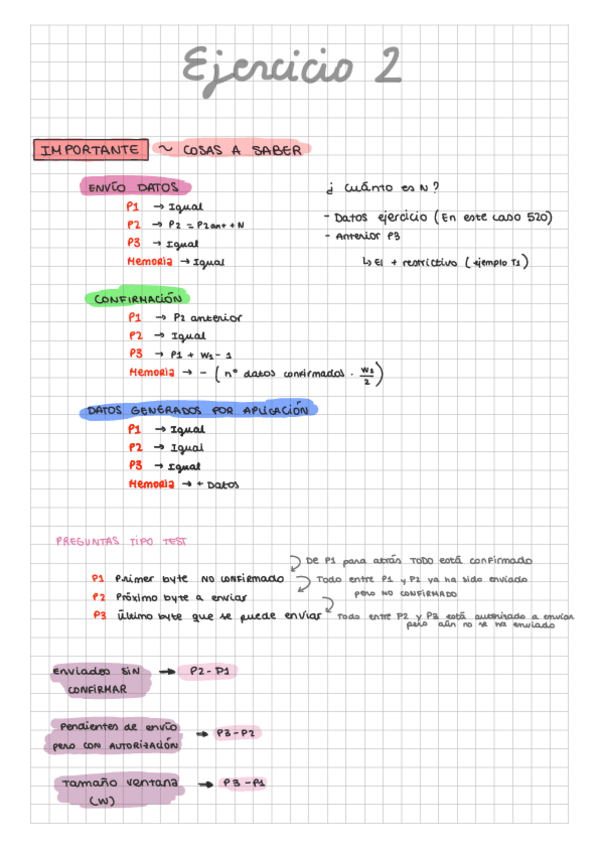 Ejercicio 2
IMPORTANTE ~ COSAS A SABER
ENVÍO DATOS
P1 → Igual
P2 → P2 = P2ant + N
P3 → Igual
Memoria → Igual
¿ Cuánto es N?
- Datos ejercicio (En este caso 520)
- Anterior P3
↳ El + restrictivo (ejemplo T1)
CONFIRMACIÓN
P1 → P2 anterior
P2 → Igual
P3 → P1 + W1 - 1
Memoria → - (nº datos confirmados · W1/2)
DATOS GENERADOS POR APLICACIÓN
P1 → Igual
P2 → Igual
P3 → Igual
Memoria → + Datos
PREGUNTAS TIPO TEST
De P1 para atrás TODO está confirmado
P1 Primer byte NO CONFIRMADO
Todo entre P1 y P2 ya ha sido enviado
pero NO CONFIRMADO
P2 Próximo byte a enviar
P3 Último byte que se puede enviar
Todo entre P2 y P3 está autorizado a enviar
pero aún no se ha enviado
Enviados sin
CONFIRMAR → P2-P1
Pendientes de envío
pero con AUTORIZACIÓN → P3-P2
Tamaño ventana
(W) → P3-P1